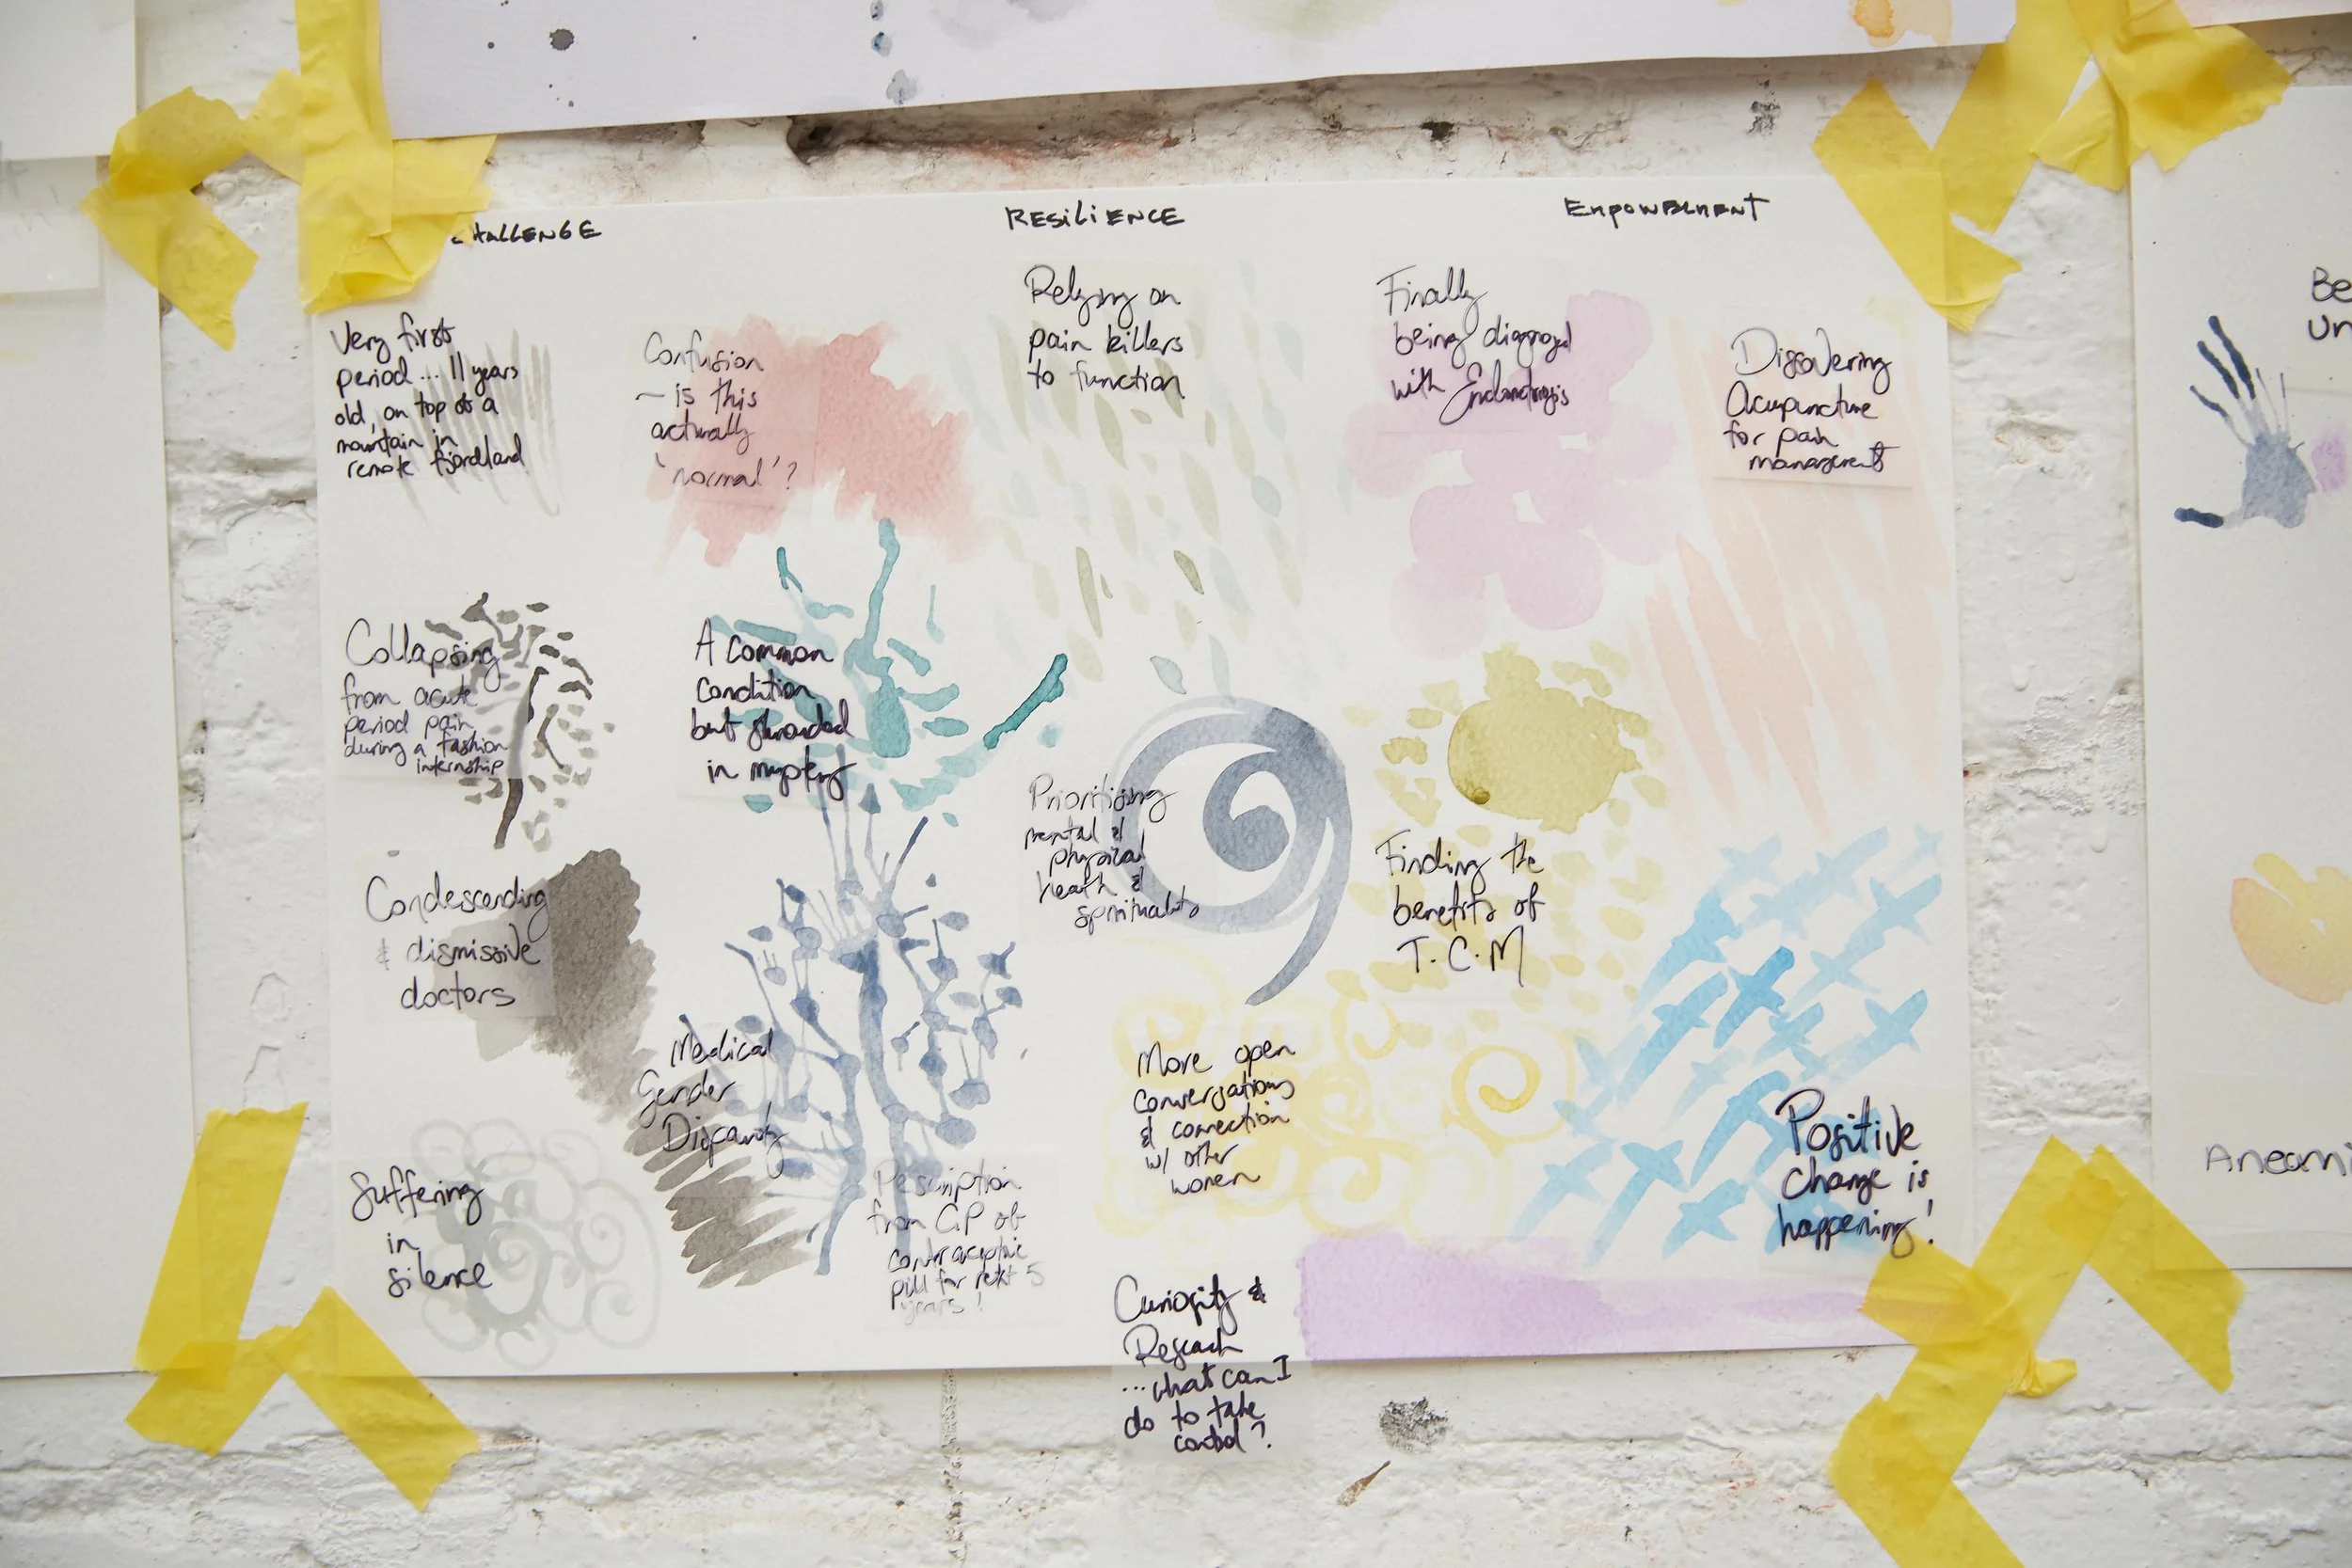 CHALLENGE
RESILIENCE
EMPOWERMENT
Very first
period... 11 years
old, on top of a
mountain in
remote fiordland
Confusion
- is this
actually
'normal'?
Relying on
pain killers
to function
Finally
being diagnosed
with Endometriosis
Discovering
Acupuncture
for pain
management
Collapsing
from acute
period pain
during a fashion
internship
A common
condition
but shrouded
in mystery
Prioritising
mental &
physical
health &
spirituality
Finding the
benefits of
T.C.M
Condescending
& dismissive
doctors
Medical
Gender
Disparity
More open
conversations
& connection
w/ other
women
Positive
change is
happening!
Suffering
in
silence
Perscription
from GP of
contraceptive
pill for next 5
years!
Curiosity &
Research
...what can I
do to take
control?
Be
un
Aneami